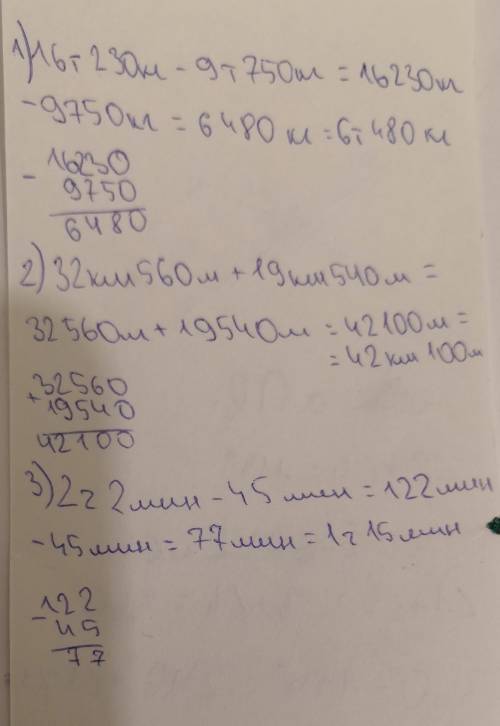 1) 16т 230кг - 9т 750кг = 16230кг
- 9750кг = 6480 кг = 6т 480 кг
- 16230
9750
6480
2) 32км 560м + 19км 540м =
32560м + 19540м = 42100м =
= 42 км 100м
+ 32560
19540
42100
3) 2ч 2мин - 45 мин = 122мин
- 45мин = 77мин = 1ч 15мин
- 122
45
77